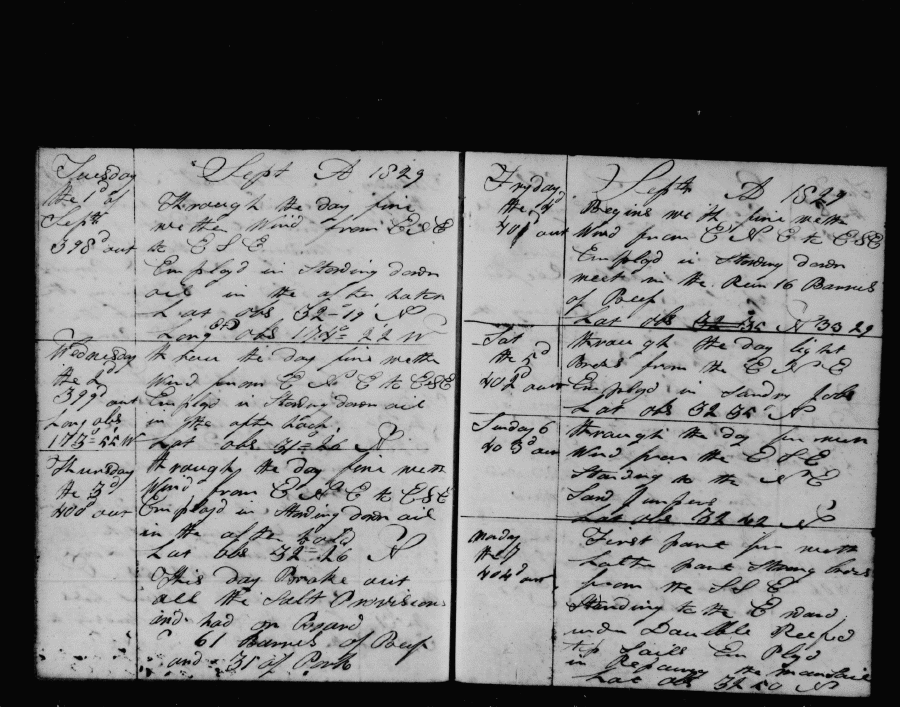 Sept AD 1829
Tuesday
the 1d of
Septr
398d out
Through the day fine
wether Wind from E N E
to E S E
Employd in Stowing down
oil in the after hatch
Lat obs 32=19 N
Long obs 174=22 W
Wednesday
the 2d
399d out
Long obs
173=55 W
through the day fine wethr
Wind from E N E to E S E
Employd in Stowing down oil
in the after
Lat obs 31=26 N
Thursday
the 3d
400d out
through the day fine weth
Wind from E N E to E S E
Employd in Stowing down oil
in the after hold
Lat obs 32=26 N
This day Broke out
all the Salt Provisions
and had on Board
61 Barrels of Beef
and 31 of Pork
Septr AD 1829
Fryday
the 4d
401d out
Begins with fine weth
Wind from E N E to E S E
Employd in Stowing down
meet in the Run 16 Barrels
of Beef
Lat obs 32=35 N 33 29
Sat
the 5d
402d out
through the day light
from the E N E
Employd in Sundry jobs
Lat obs 32 35 N
Sunday 6
403d out
through the day
Wind from the E S E
Standing to the N E
Lat obs 32 42 N
Monday
the 7
404d out
First part fin weth
Latter part Strong
from the S S E
Standing to the E ward
under Dauble Reefed
top Sails Em Ployd
in Repairing the mansail
Lat obs 32 50 N